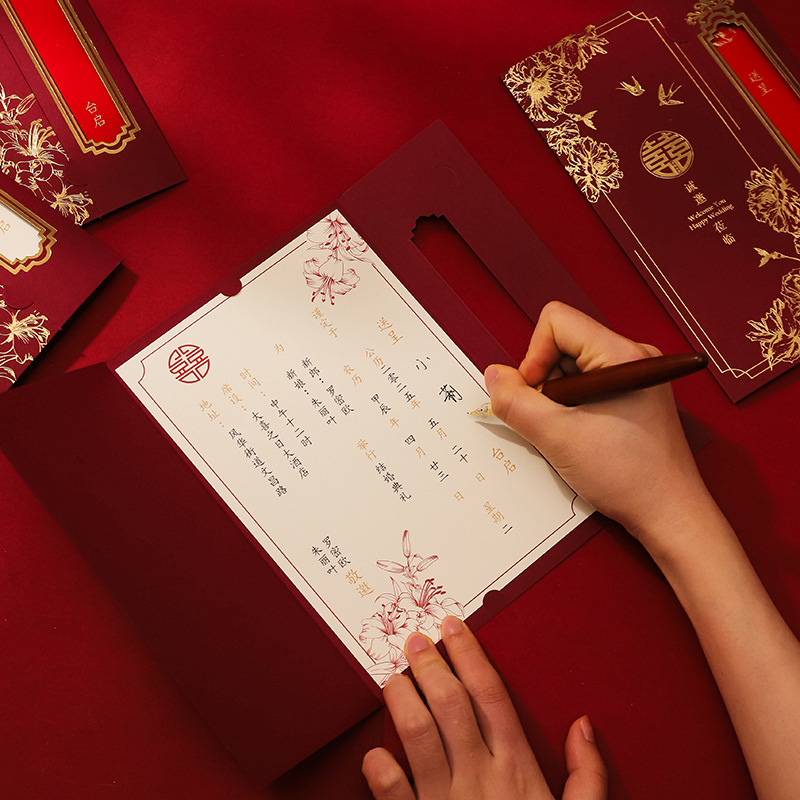 台启
启
送呈
囍
诚邀
Welcome You
Happy Wedding
莅临
囍
送呈 小莉 台启
谨定于
公历 二零二五年 五月 二十日 星期二
农历 甲辰年 四月 廿三日
为
新郎：罗密欧
新娘：朱丽叶
举行 结婚典礼
时间：中午十二时
席设：大喜之日大酒店
地址：风华街道文昌路
罗密欧
朱丽叶
敬邀